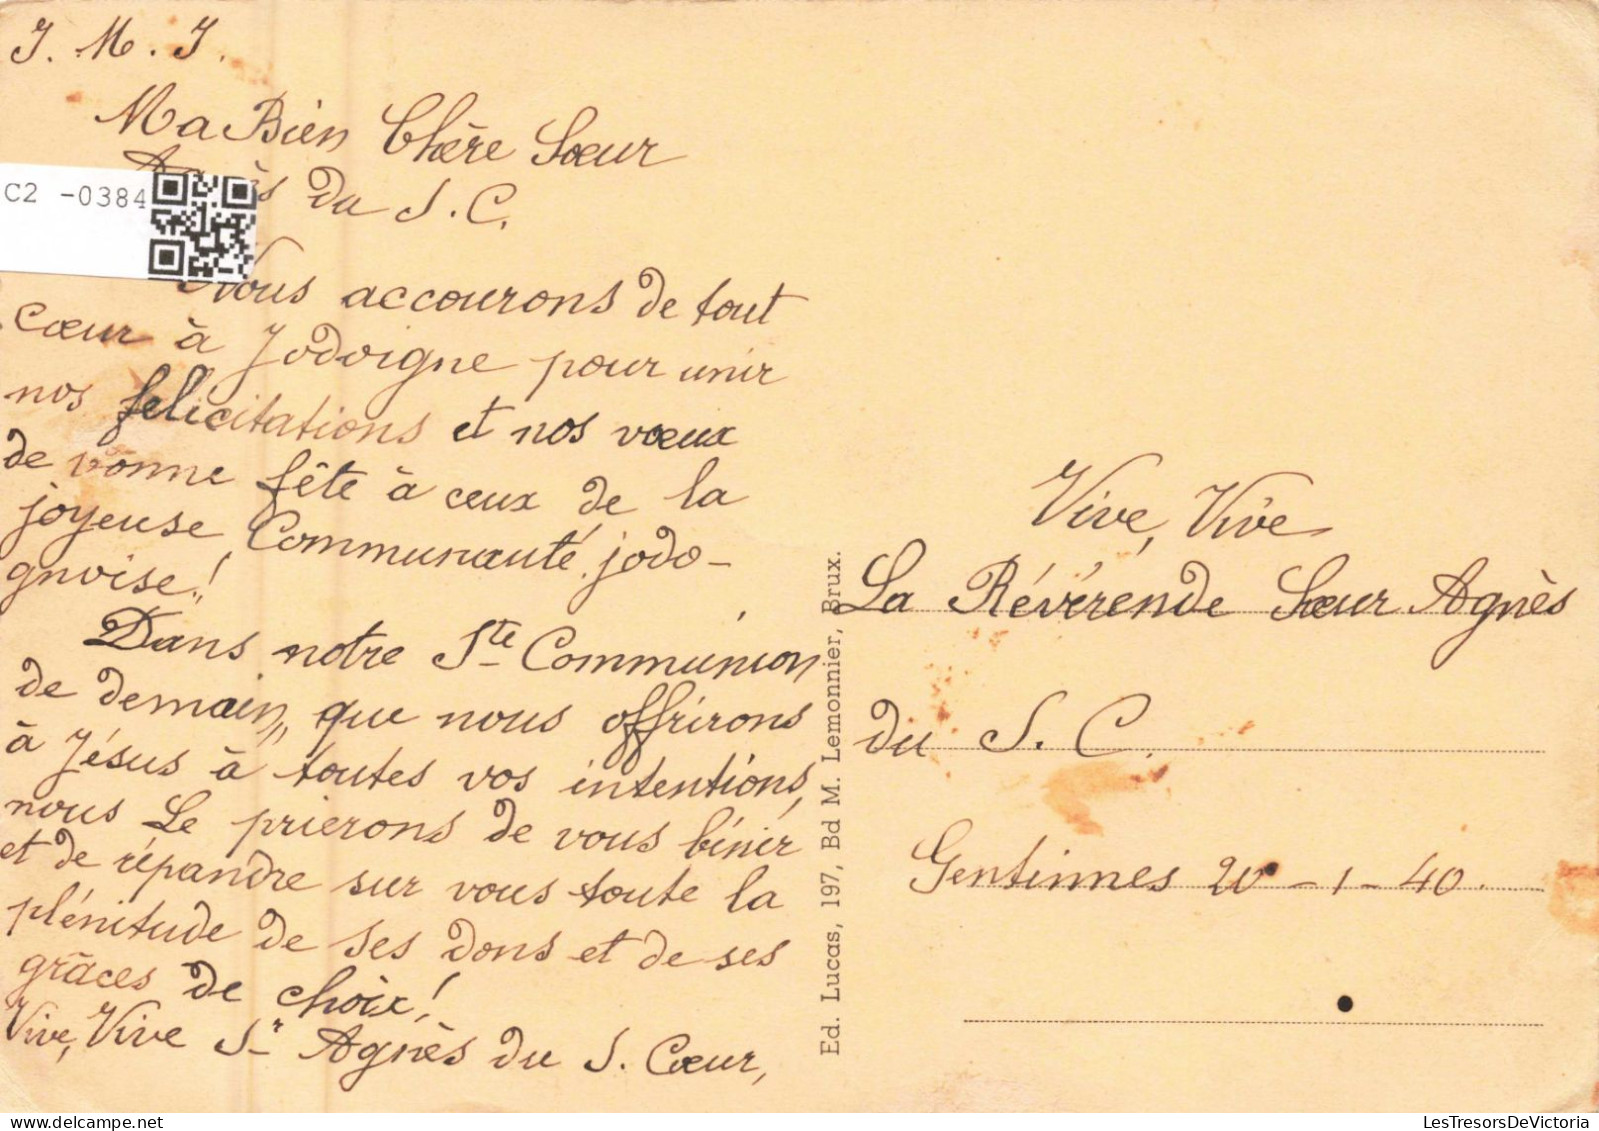 J. M. J.
Ma Bien Chère Sœur
du S. C.
C2 -0384
Nous accourons de tout
cœur à Jodoigne pour unir
nos félicitations et nos vœux
de bonne fête à ceux de la
joyeuse Communauté jodo-
gnoise!
Dans notre Ste Communion
de demain, que nous offrirons
à Jésus à toutes vos intentions,
nous Le prierons de vous bénir
et de répandre sur vous toute la
plénitude de ses dons et de ses
grâces de choix!
Vive, Vive Sr Agnès du S. Cœur,
Ed. Lucas, 197, Bd M. Lemonnier, Brux.
Vive, Vive
La Révérende Sœur Agnès
du S. C.
Gentinnes 20-1-40.
LesTresorsDeVictoria